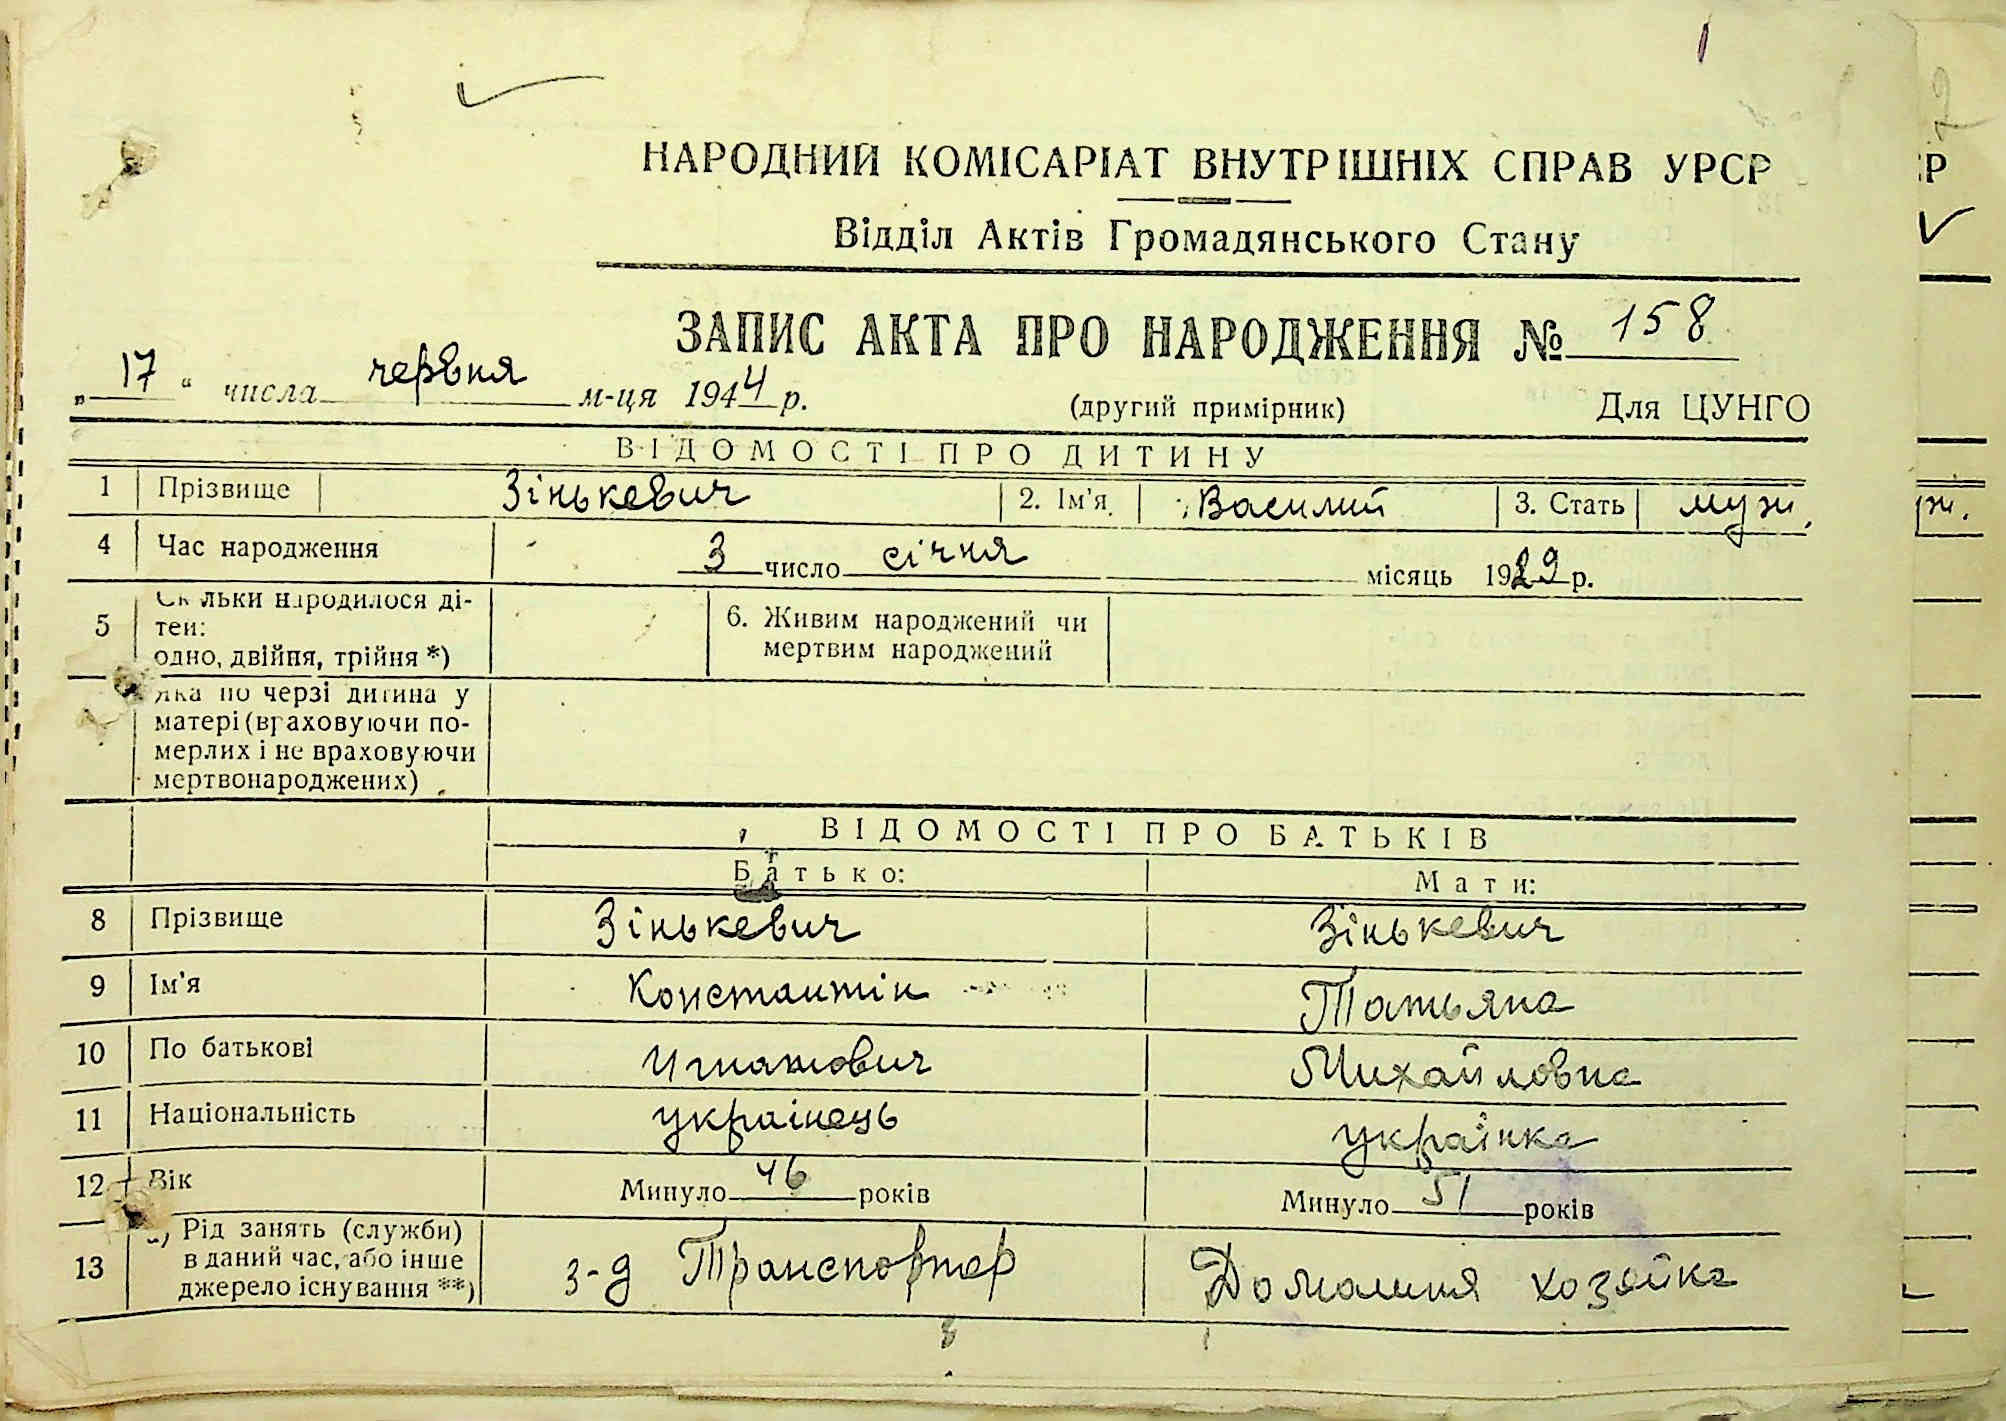 НАРОДНИЙ КОМІСАРІАТ ВНУТРІШНІХ СПРАВ УРСР
Відділ Актів Громадянського Стану
ЗАПИС АКТА ПРО НАРОДЖЕННЯ № 158
„17“ числа червня м-ця 1944 р. (другий примірник) Для ЦУНГО
ВІДОМОСТІ ПРО ДИТИНУ
1 Прізвище Зінькевич 2. Ім'я Василий 3. Стать муж.
4 Час народження 3 число січня місяць 1929 р.
5 Скільки народилося ді-
теи:
одно, двійня, трійня *)
6. Живим народжений чи
мертвим народжений
яка по черзі дитина у
матері (враховуючи по-
мерлих і не враховуючи
мертвонароджених)
ВІДОМОСТІ ПРО БАТЬКІВ
Батько: Мати:
8 Прізвище Зінькевич Зінькевич
9 Ім'я Константін Татьяна
10 По батькові Игнатович Михайловна
11 Національність українець українка
12 Вік Минуло 46 років Минуло 51 років
13 Рід занять (служби)
в даний час, або інше
джерело існування **)
з-д Транспортер Домашня хозяйка